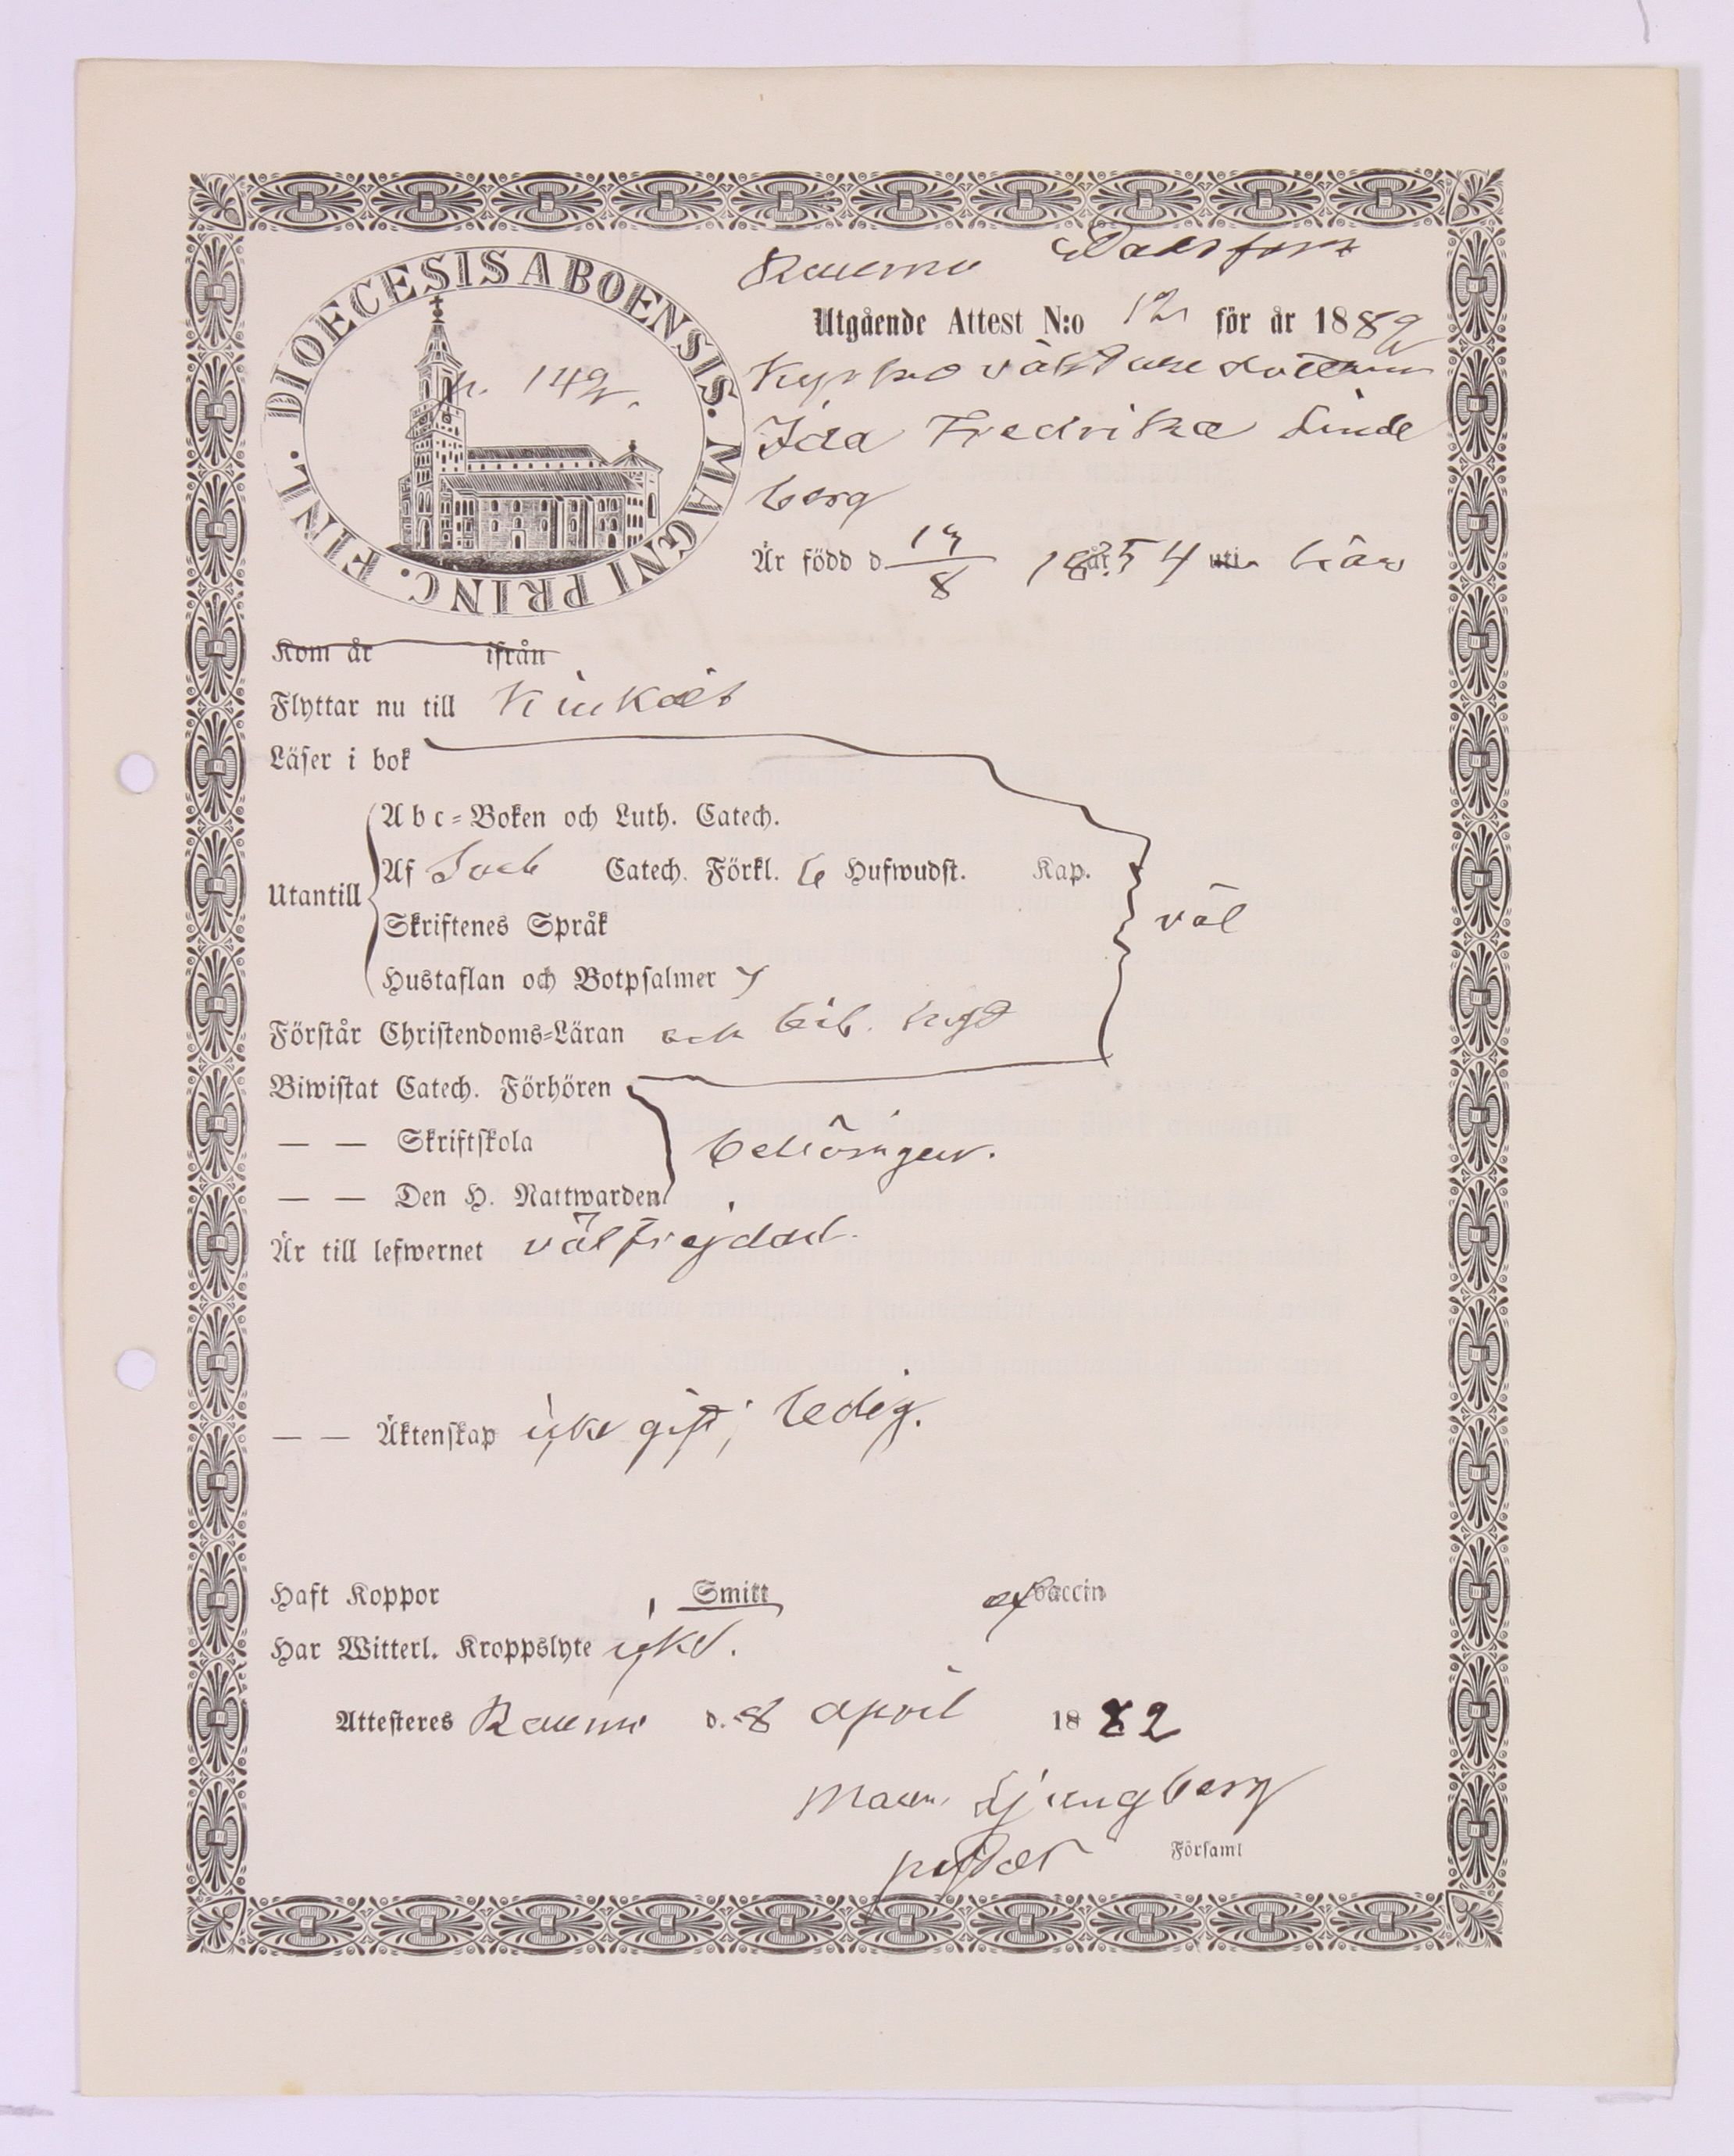 DIOECESIS ABOENSIS. MAGNI PRINC. FINL.
p. 149.
Raumo Stadsförs
Utgående Attest N:o 12 för år 1882
Kyrkoväktaredottern
Ida Fredrika Linde
berg
Är född d 13/8 år 1854 uti här
Kom år ifrån
Flyttar nu till
Läser i bok
Utantill
Abc-Boken och Luth. Catech.
Af Catech. Förkl. 6 Hufwudst. Kap.
Skriftenes Språk
väl
Hustaflan och Botpsalmer 7
Förstår Christendoms-Läran och bib. hist
Biwistat Catech. Förhören
— — Skriftskola behörigen.
— — Den H. Nattwarden
Är till lefwernet välfrejdad.
— — Äktenskap icke gift; ledig.
Haft Koppor Smitt af vaccin
Har Witterl. Kroppslyte icke.
Attesteres Raumo d. 8 april 1882
Maur. Ljungberg
pastor Församl